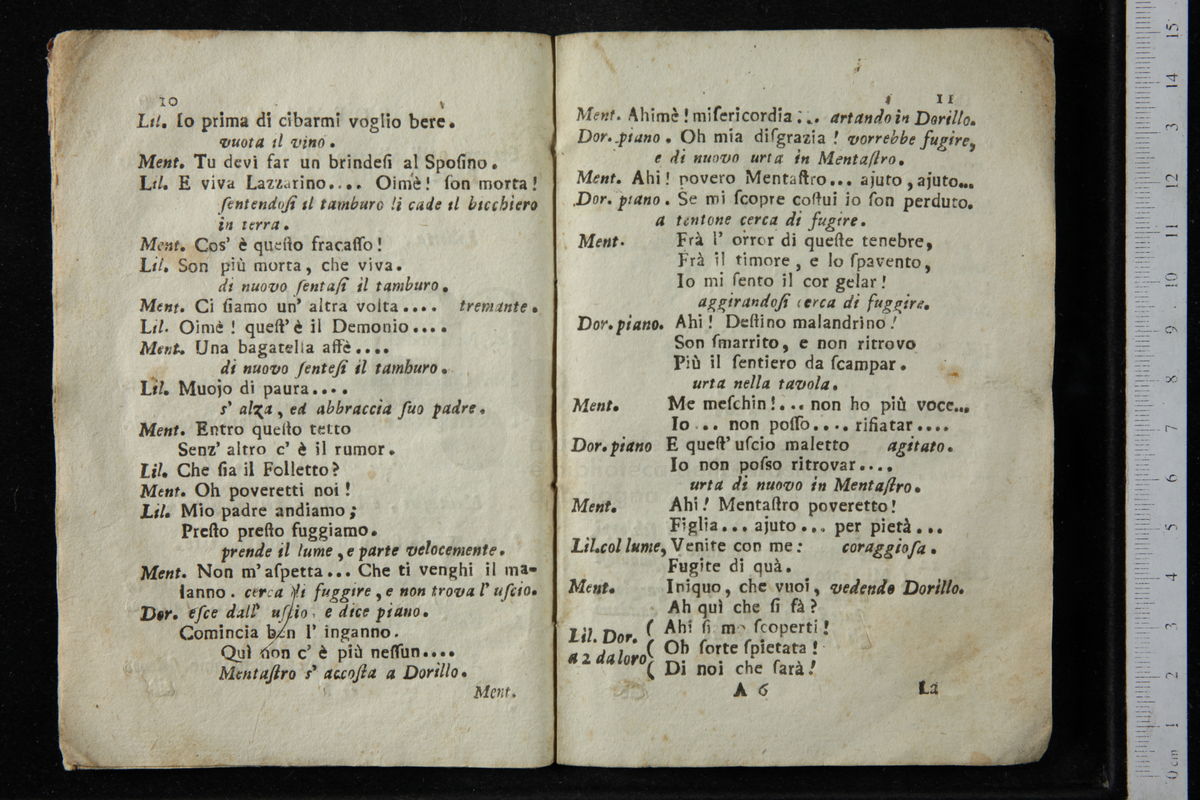 10
Lil. Io prima di cibarmi voglio bere.
vuota il vino.
Ment. Tu devi far un brindeſi al Spoſino.
Lil. E viva Lazzarino.... Oimè! ſon morta!
ſentendoſi il tamburo li cade il bicchiero
in terra.
Ment. Cos' è queſto fracaſſo!
Lil. Son più morta, che viva.
di nuovo ſentaſi il tamburo.
Ment. Ci ſiamo un' altra volta.... tremante.
Lil. Oimè! queſt' è il Demonio....
Ment. Una bagatella affè....
di nuovo ſenteſi il tamburo.
Lil. Muojo di paura....
s' alza, ed abbraccia ſuo padre.
Ment. Entro queſto tetto
Senz' altro c' è il rumor.
Lil. Che ſia il Folletto?
Ment. Oh poveretti noi!
Lil. Mio padre andiamo;
Preſto preſto fuggiamo.
prende il lume, e parte velocemente.
Ment. Non m' aſpetta... Che ti venghi il ma-
lanno. cerca di fuggire, e non trova l' uſcio.
Dor. eſce dall' uſcio, e dice piano.
Comincia ben l' inganno.
Quì non c' è più neſſun....
Mentaſtro s' accoſta a Dorillo.
Ment.
11
Ment. Ahimè! miſericordia... artando in Dorillo.
Dor. piano. Oh mia diſgrazia! vorrebbe fugire,
e di nuovo urta in Mentaſtro.
Ment. Ahi! povero Mentaſtro... ajuto, ajuto...
Dor. piano. Se mi ſcopre coſtui io ſon perduto.
a tentone cerca di fugire.
Ment. Frà l' orror di queſte tenebre,
Frà il timore, e lo ſpavento,
Io mi ſento il cor gelar!
aggirandoſi cerca di fuggire.
Dor. piano. Ahi! Deſtino malandrino!
Son ſmarrito, e non ritrovo
Più il ſentiero da ſcampar.
urta nella tavola.
Ment. Me meſchin!... non ho più voce...
Io... non poſſo.... rifiatar....
Dor. piano E queſt' uſcio maletto agitato.
Io non poſso ritrovar....
urta di nuovo in Mentaſtro.
Ment. Ahi! Mentaſtro poveretto!
Figlia... ajuto... per pietà...
Lil. col lume, Venite con me: coraggioſa.
Fugite di quà.
Ment. Iniquo, che vuoi, vedendo Dorillo.
Ah quì che ſi fà?
Lil. Dor. ( Ahi ſiamo ſcoperti!
a 2 da loro ( Oh ſorte ſpietata!
( Di noi che ſarà!
A 6 La